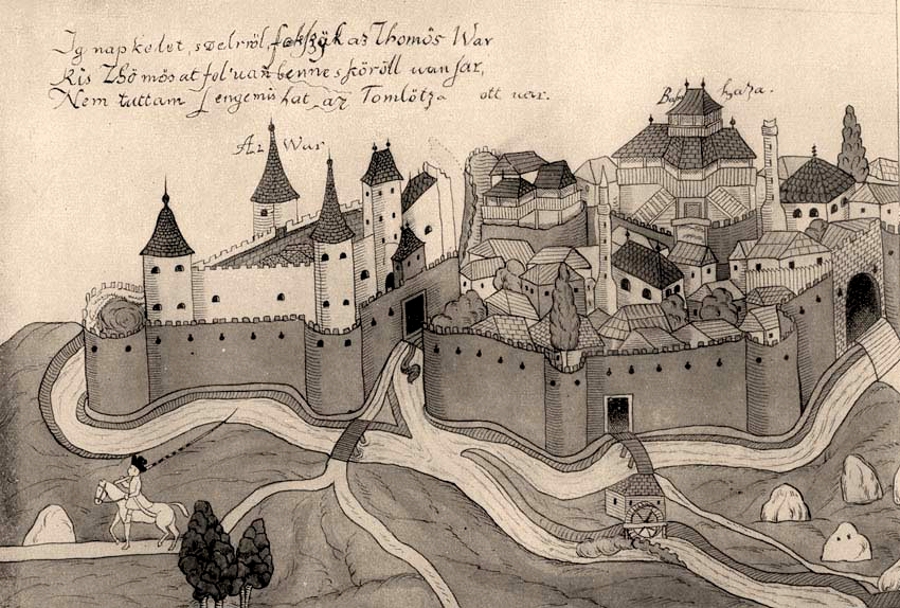 Ig nap kelet, szelröl, fekszik az Thömös War
Kis Thömös at fel'uan benne s köröll wan sar,
Nem tuttam engemis hat az Tomlötza ott uar.
Az War
Basa haza.